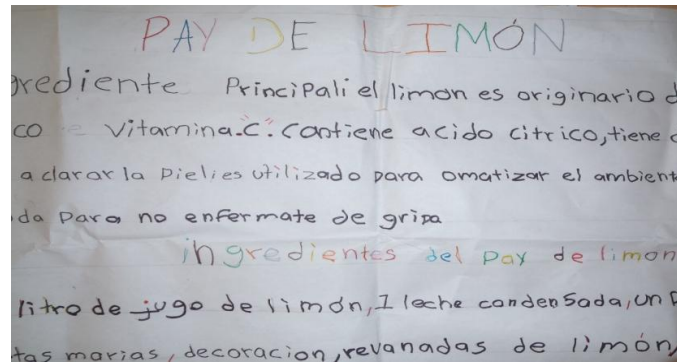 PAY DE LIMÓN
grediente Principali el limon es originario d
co e Vitamina.C". Contiene acido citrico, tiene
a clarar la Pielies utilizado para omatizar el ambient
da Para no enfermate de gripa
ingredientes del Pay de limon
litro de jugo de limón, 1 leche condensada, un
tas marias, decoracion, revanadas de limón,